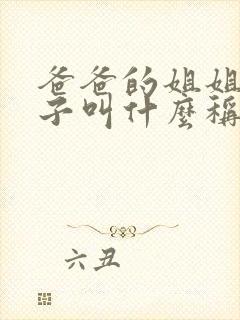 爸爸的姐姐
子叫什麼稱
六丑